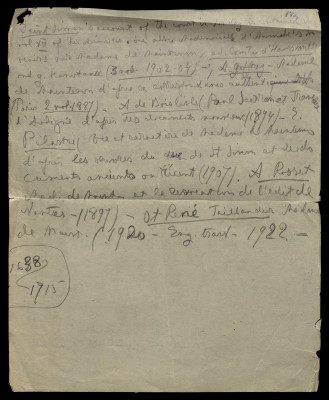 Saint Simon's account of the court
vol XII of Memoires
Madame de Maintenon, ed. Comte d'Haussonville
and G. Hanotaux (3 vols 1902-04) -, A. Geffroy - Madame
de Maintenon d'après sa correspondance authentique
(Paris 2 vols 1887) - A. de Boislisle (Paul Scarron et Françoise
d'Aubigné d'après des documents nouveaux (1894) - E.
Pilastre; Vie et caractère de Madame de Maintenon
d'après les œuvres du duc de St. Simon et des do
cuments anciens ou récents (1907), A. Rosset
Mad. de Maint - et la révocation de l'édit de
Nantes - (1897) - St René Taillandier Madame
de Maint - (1920 - Eng. trans - 1922 -
1688
1715